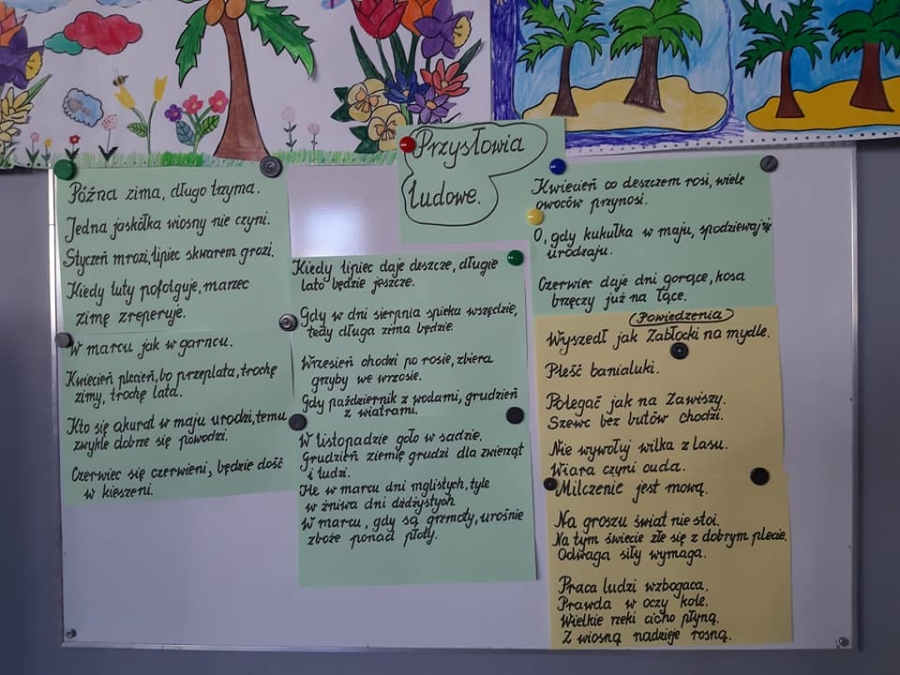 Przysłowia
ludowe.
Późna zima, długo trzyma.
Jedna jaskółka wiosny nie czyni.
Styczeń mrozi, lipiec skwarem grozi.
Kiedy luty pofolguje, marzec
zimę zreperuje.
W marcu jak w garncu.
Kwiecień plecień, bo przeplata, trochę
zimy, trochę lata.
Kto się akurat w maju urodzi, temu
zwykle dobrze się powodzi.
Czerwiec się czerwieni, będzie dość
w kieszeni.
Kiedy lipiec daje deszcze, długie
lato będzie jeszcze.
Gdy w dni sierpnia spieka wszędzie,
tedy długa zima będzie.
Wrzesień chodzi po rosie, zbiera
grzyby we wrzosie.
Gdy październik z wodami, grudzień
z wiatrami.
W listopadzie goło w sadzie.
Grudzień ziemię grudzi dla zwierząt
i ludzi.
Ile w marcu dni mglistych, tyle
w żniwa dni dżdżystych
W marcu, gdy są grzmoty, urośnie
zboże ponad płoty.
Kwiecień co deszczem rosi, wiele
owoców przynosi.
O, gdy kukułka w maju, spodziewaj się
urodzaju.
Czerwiec daje dni gorące, kosa
brzęczy już na łące.
Powiedzenia
Wyszedł jak Zabłocki na mydle.
Pleść banialuki.
Polegać jak na Zawiszy.
Szewc bez butów chodzi.
Nie wywołuj wilka z lasu.
Wiara czyni cuda.
Milczenie jest mową.
Na groszu świat nie stoi.
Na tym świecie źle się z dobrym plecie.
Odwaga siły wymaga.
Praca ludzi wzbogaca.
Prawda w oczy kole.
Wielkie rzeki cicho płyną.
Z wiosną nadzieje rosną.